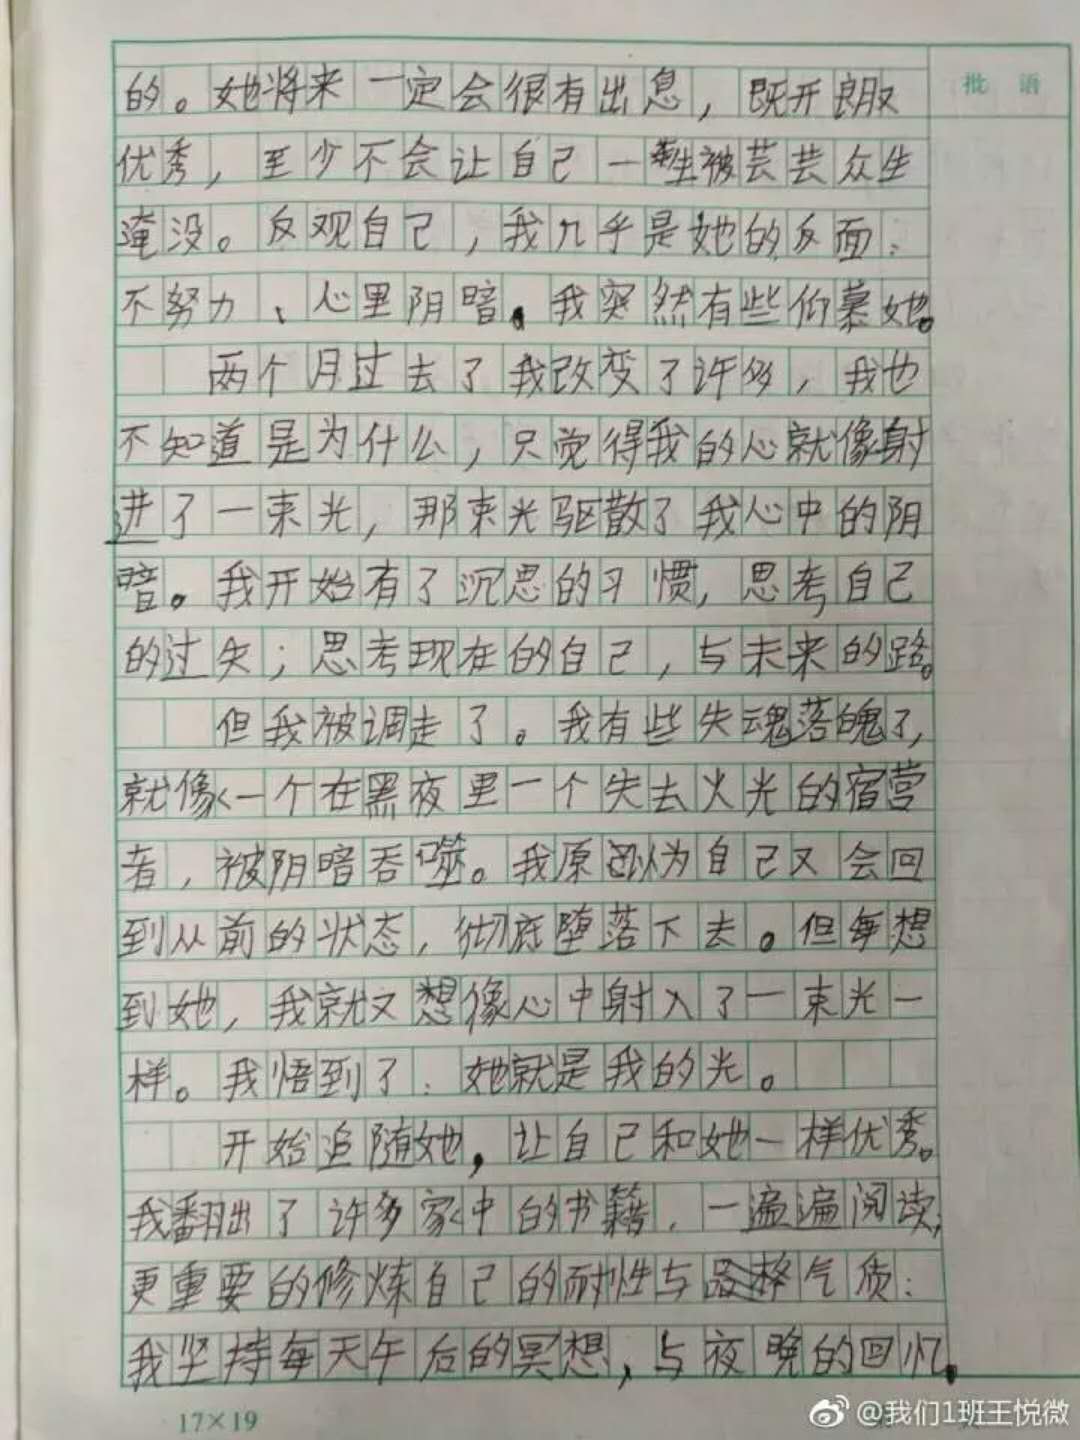 批 语
的。她将来一定会很有出息，既开朗又
优秀，至少不会让自己一生被芸芸众生
淹没。反观自己，我几乎是她的反面：
不努力、心里阴暗。我突然有些仰慕她。
两个月过去了我改变了许多，我也
不知道是为什么，只觉得我的心就像射
进了一束光，那束光驱散了我心中的阴
暗。我开始有了沉思的习惯，思考自己
的过失；思考现在的自己，与未来的路。
但我被调走了。我有些失魂落魄了，
就像一个在黑夜里一个失去火光的宿营
者，被阴暗吞噬。我原以为自己又会回
到从前的状态，彻底堕落下去。但每想
到她，我就又想像心中射入了一束光一
样。我悟到了：她就是我的光。
开始追随她，让自己和她一样优秀。
我翻出了许多家中的书籍，一遍遍阅读；
更重要的修炼自己的耐性与品格气质：
我坚持每天午后的冥想，与夜晚的回忆。
17×19
@我们1班王悦微